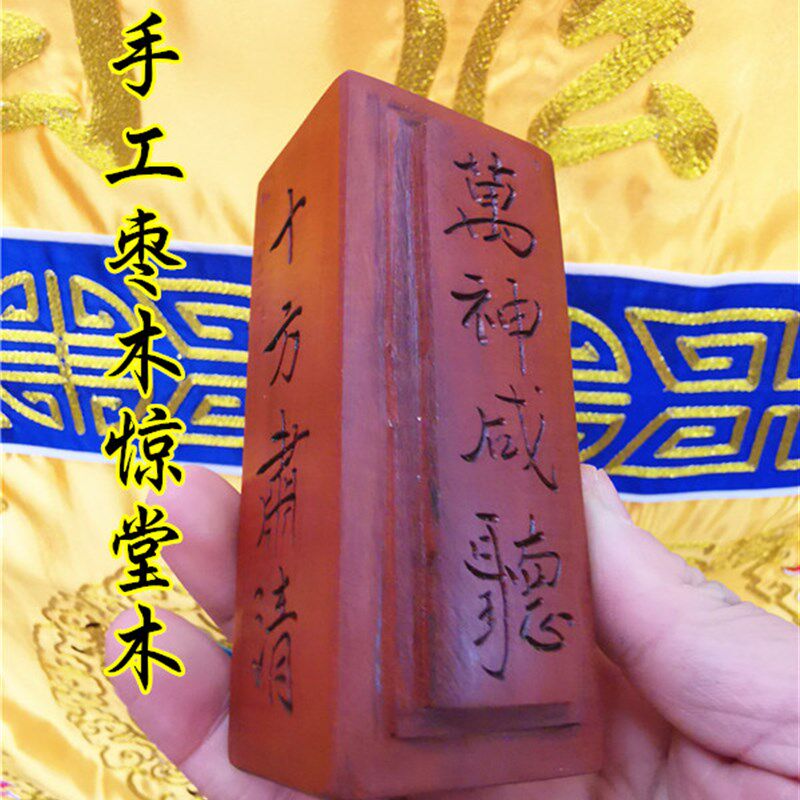 手工枣木惊堂木
萬神咸聽
十方肅清